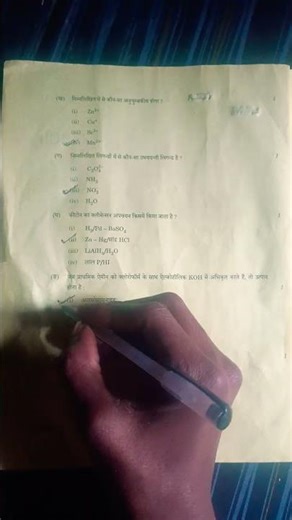 (ख) निम्नलिखित में से कौन-सा अनुचुम्बकीय होगा ?
(i) Zn²⁺
(ii) Cu⁺
(iii) Sc³⁺
(iv) Mn²⁺
(ग) निम्नलिखित लिगण्डों में से कौन-सा उभयदन्ती लिगण्ड है ?
(i) C₂O₄²⁻
(ii) NH₃
(iii) NO₂
(iv) H₂O
(घ) कीटोन का क्लीमेंसन अपचयन किससे किया जाता है ?
(i) H₂/Pd – BaSO₄
(ii) Zn – Hg/सांद्र HCl
(iii) LiAlH₄/H₂O
(iv) लाल P/HI
प्राथमिक ऐमीन को क्लोरोफॉर्म के साथ ऐल्कोहॉलिक KOH में अभिकृत करते हैं, तो उत्पाद
होता है